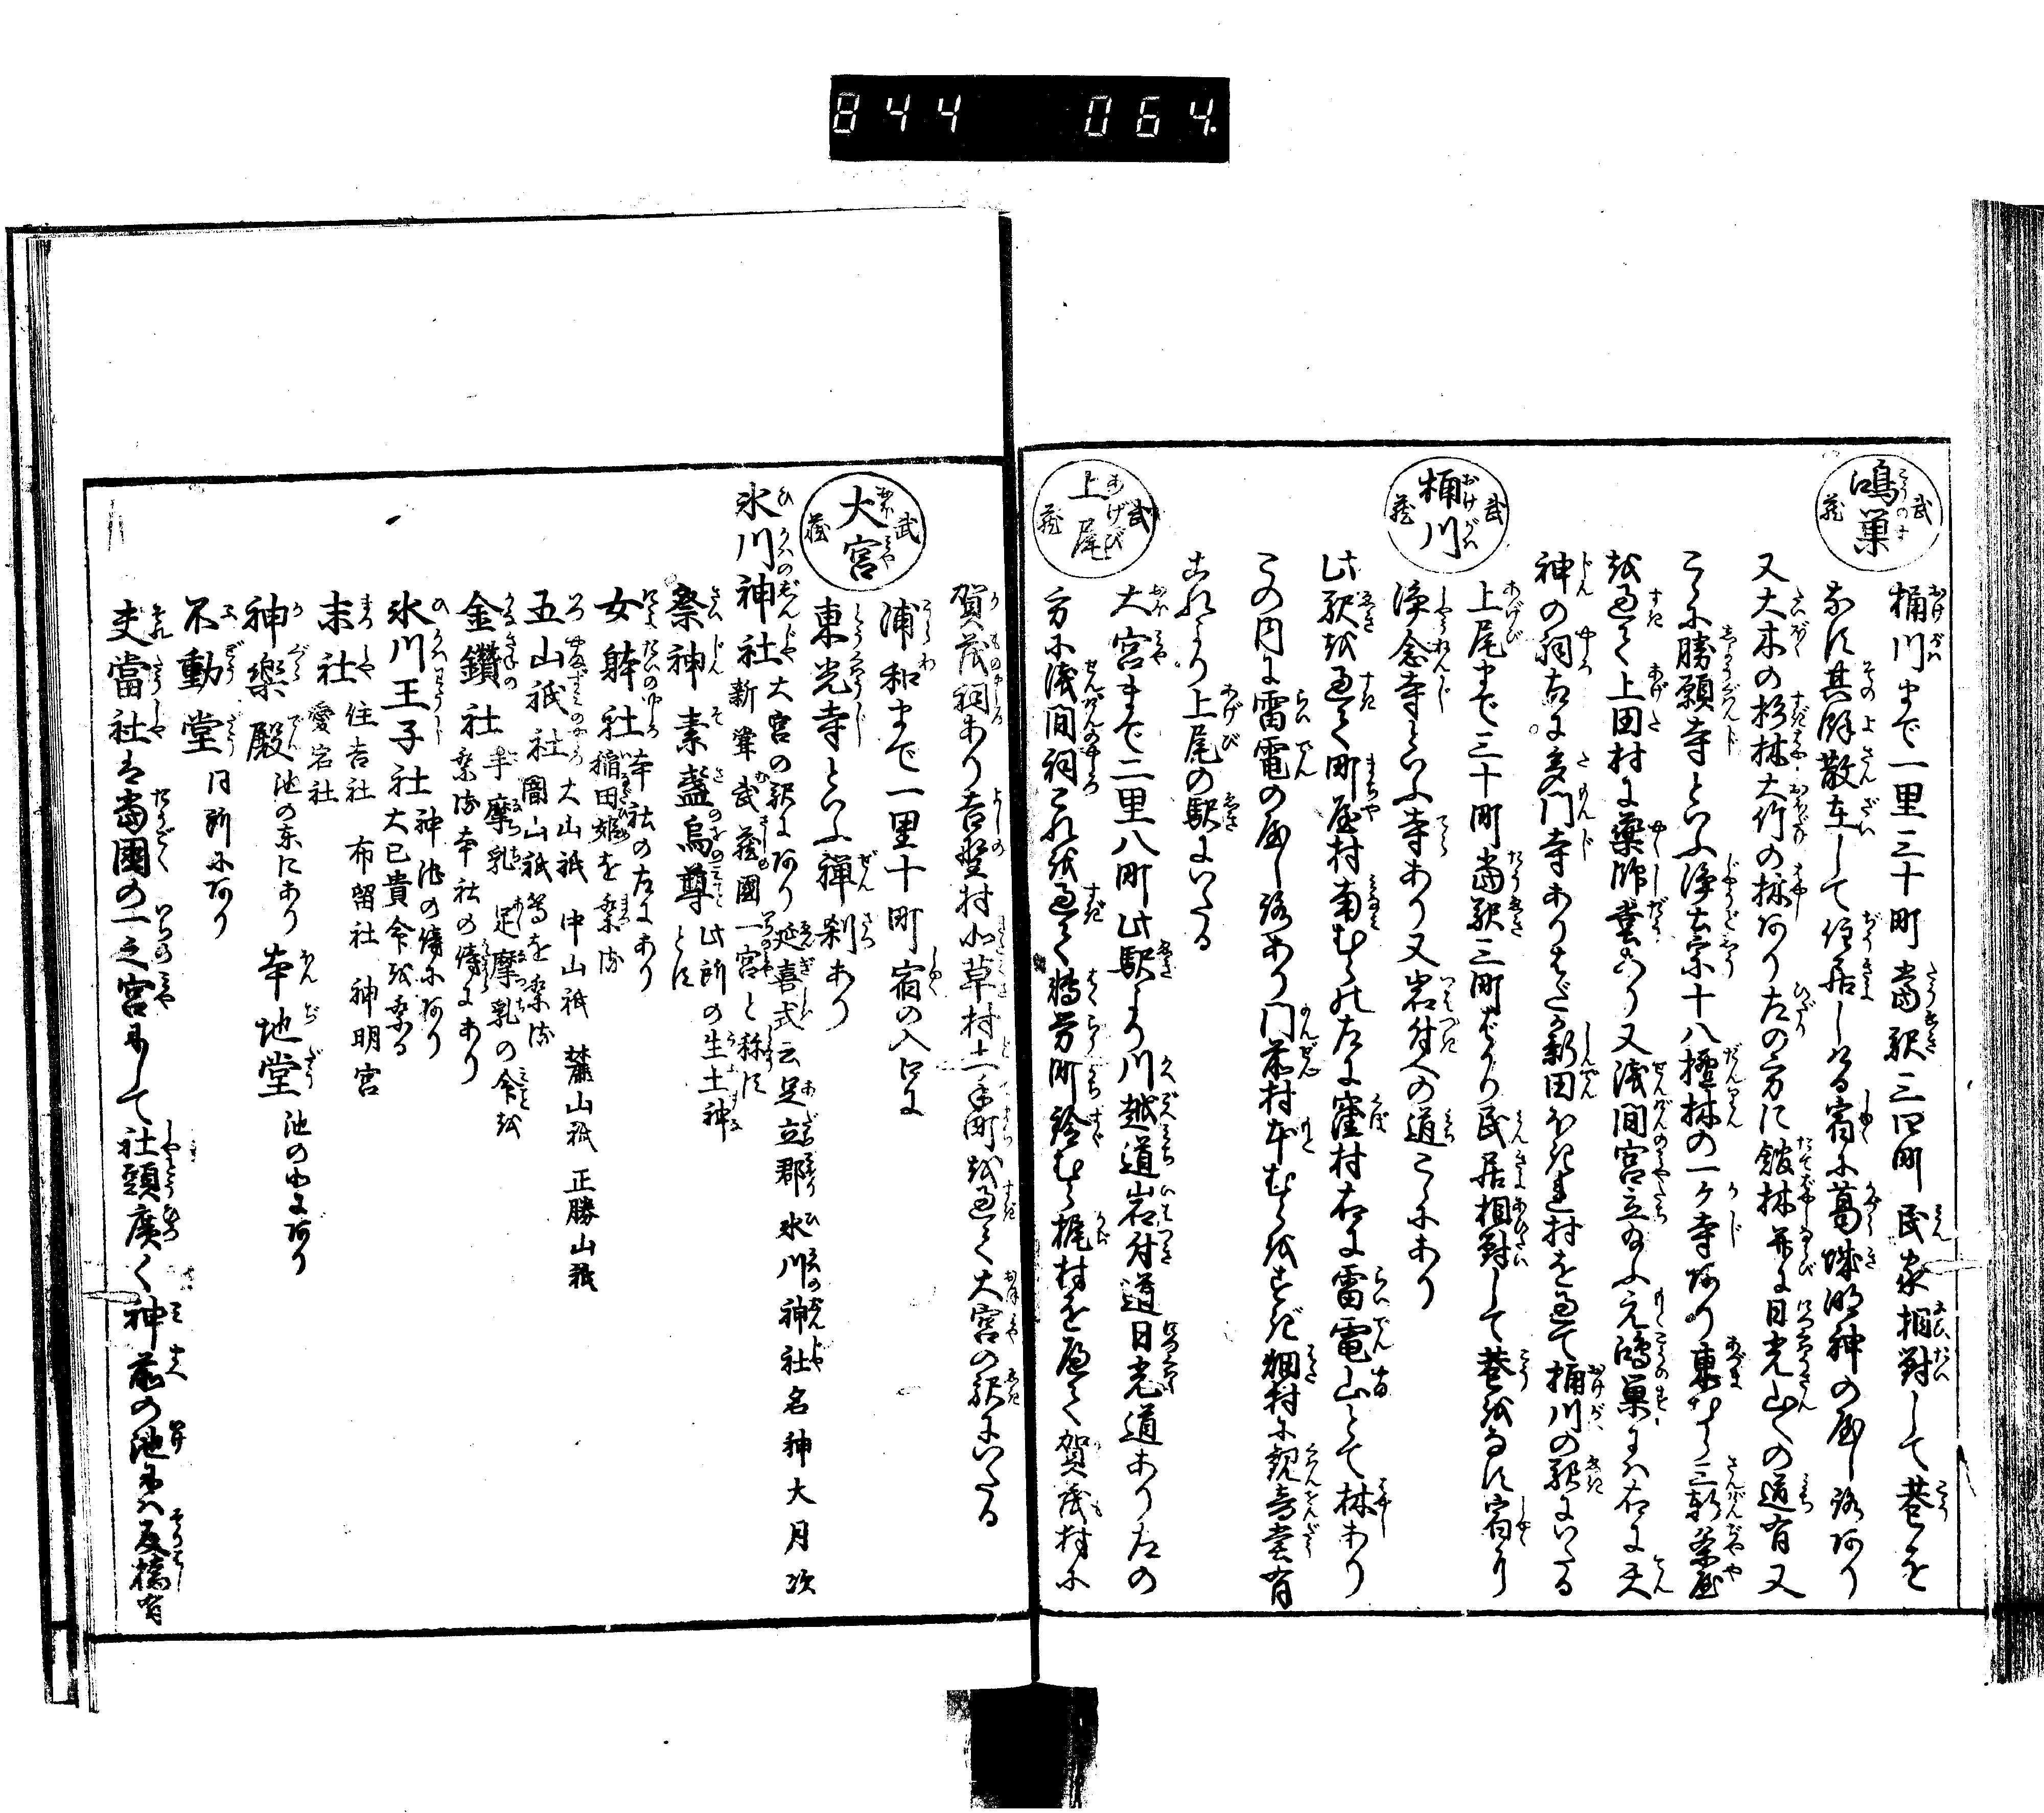 844 064.
武蔵 鴻巣
桶川まで一里三十町當駅三四町民家相對して巷を
なす其餘散在して住居しける宿に葛城明神の屋しろあり
又大木の杉林大竹の林あり左の方に館林并に日光山への道有又
こゝに勝願寺といふ浄土宗十八檀林の一ケ寺あり東むら三軒茶屋
を過て上田村に薬師堂あり又浅間宮立給ふ元鴻巣には右に天
神の祠右に多門寺ありさだ新田村を過て桶川の駅にいたる
武蔵 桶川
上尾まで三十町當駅三町ばかり民居相對して巷をなす宿より
浄念寺といふ寺あり又岩付への道こゝにあり
此駅を過て町屋村南むら左に窪村右に雷電山とて林あり
この内に雷電の屋しろあり門前村本むらをすぎ畑村に観音堂有
これより上尾の駅にいたる
武蔵 上尾
大宮まで二里八町此駅より川越道岩付道日光道あり左の
方に浅間祠これを過て町むら梶村を歴て賀茂村に
賀茂祠あり吉野村加草村土手町を過て大宮の駅にいたる
武蔵 大宮
浦和まで一里十町宿の入口に
東光寺といふ禅刹あり
氷川神社 大宮の駅にあり延喜式云足立郡氷川神社名神大月次
新嘗武蔵國一宮と称す
祭神素盞烏尊とす 此所の生土神
女躰社 本社の左にあり
稲田姫を祭る
五山祇社 大山祇 中山祇 麓山祇 正勝山祇
闇山祇等を祭る
金鑚社 手摩乳 足摩乳の命を
祭る本社の傍にあり
氷川王子社 神池の傍にあり
大已貴命を祭る
末社 住吉社 布留社 神明宮
愛宕社
神樂殿 池の東にあり 本地堂 池の中にあり
不動堂 同所にあり
夫當社は當國の一之宮にして社頭廣く神前の池には反橋有